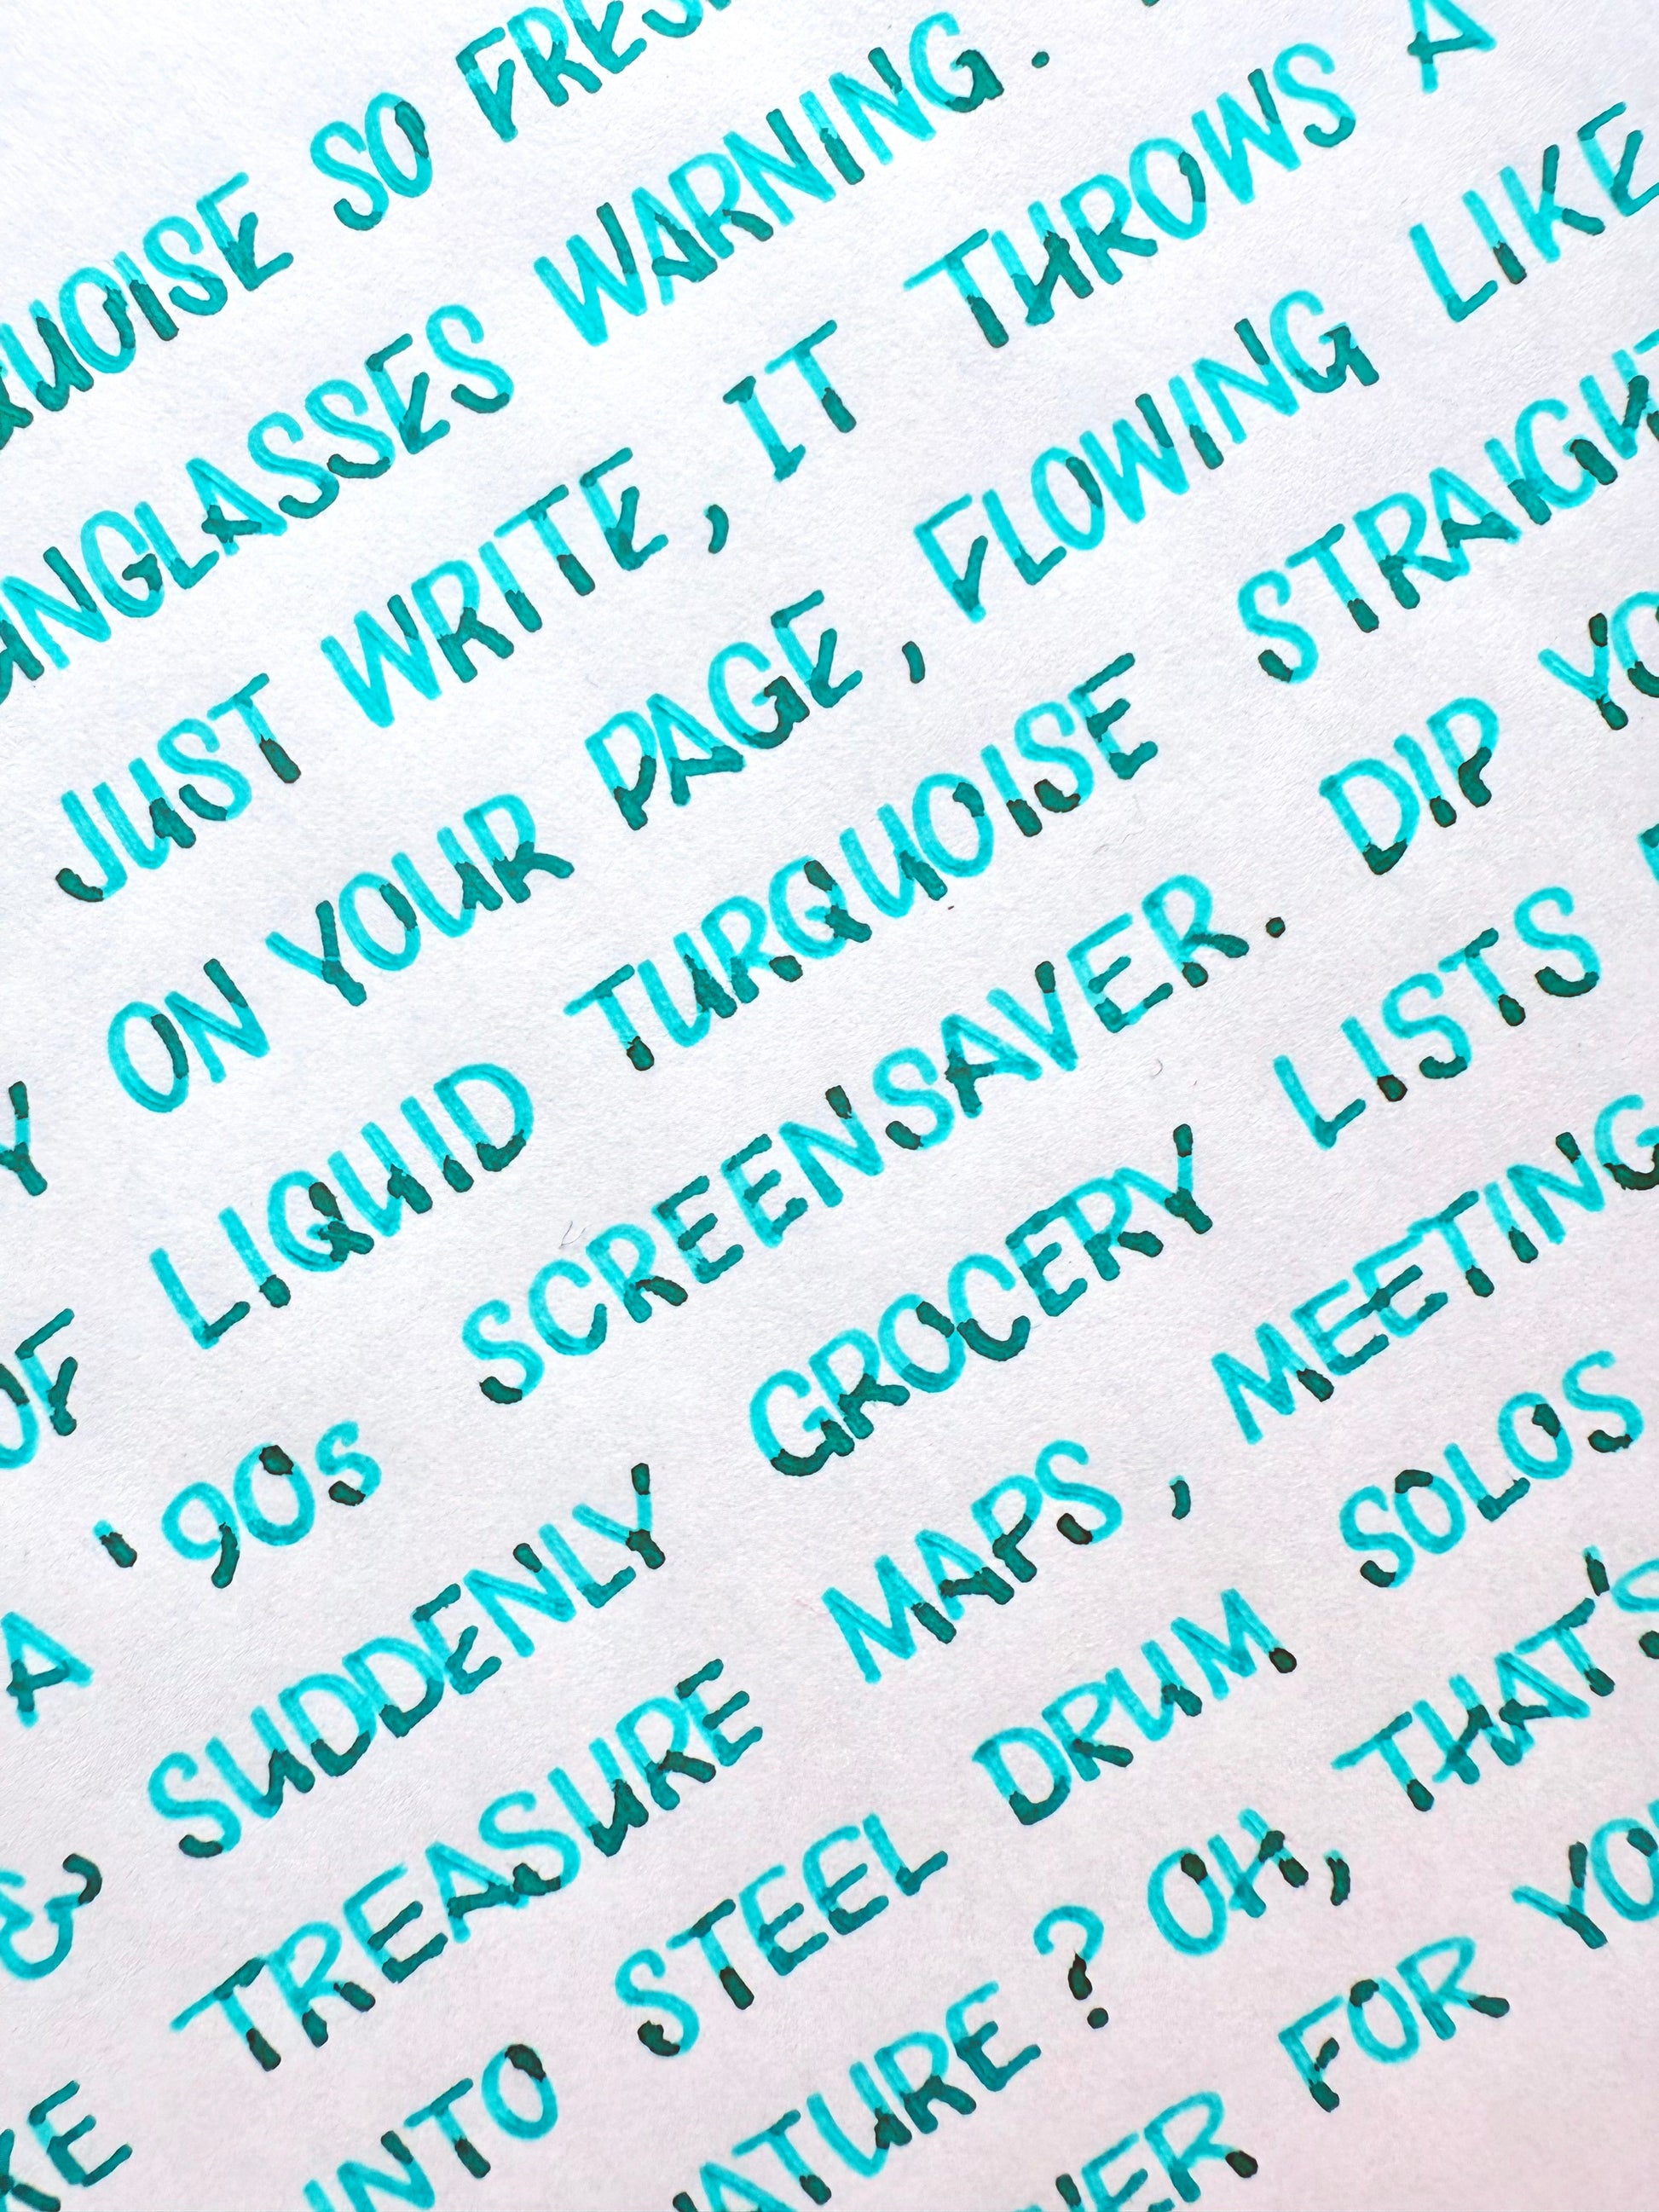 QUOISE SO FRES
UNGLASSES WARNING.
JUST WRITE, IT THROWS A
Y ON YOUR PAGE, FLOWING LIKE
OF LIQUID TURQUOISE STRAIGHT
A '90s SCREENSAVER. DIP YO
& SUDDENLY GROCERY LISTS
KE TREASURE MAPS, MEETING
INTO STEEL DRUM SOLOS
ATURE? OH, THAT'S
ER FOR YO